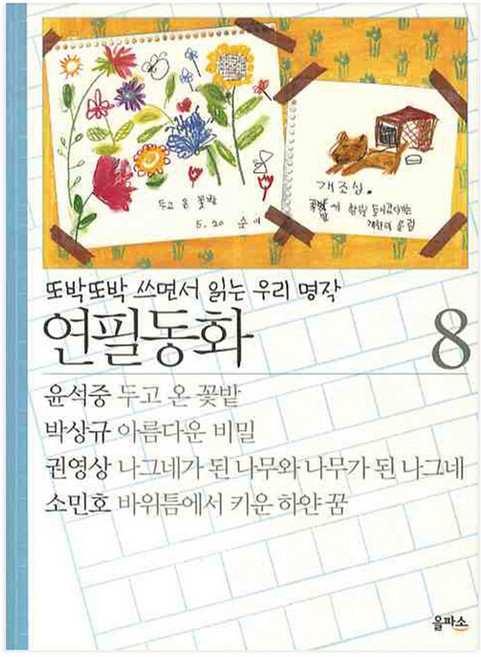 두고 온 꽃밭
5.20 순이
개조심.
또박또박 쓰면서 읽는 우리 명작
연필동화
8
윤석중 두고 온 꽃밭
박상규 아름다운 비밀
권영상 나그네가 된 나무와 나무가 된 나그네
소민호 바위틈에서 키운 하얀 꿈
을파소